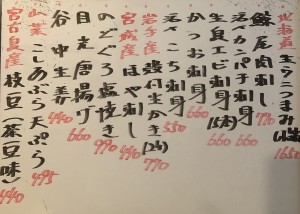 北海道産生ウニつまみ(塩水)1650
鯨尾肉刺し 770
活〆カンパチ刺身 660
生員エビ刺身(5本) 660
かつお刺身
活〆こち刺身 550
岩手産 殻付生かき(2コ) 770
宮城産 ほや刺し 440
のどぐろ塩焼き 990
目光唐揚げ 660
谷中生姜 440
山菜 こしあぶら天ぷら 495
宮古島産 枝豆(茶豆味) 440